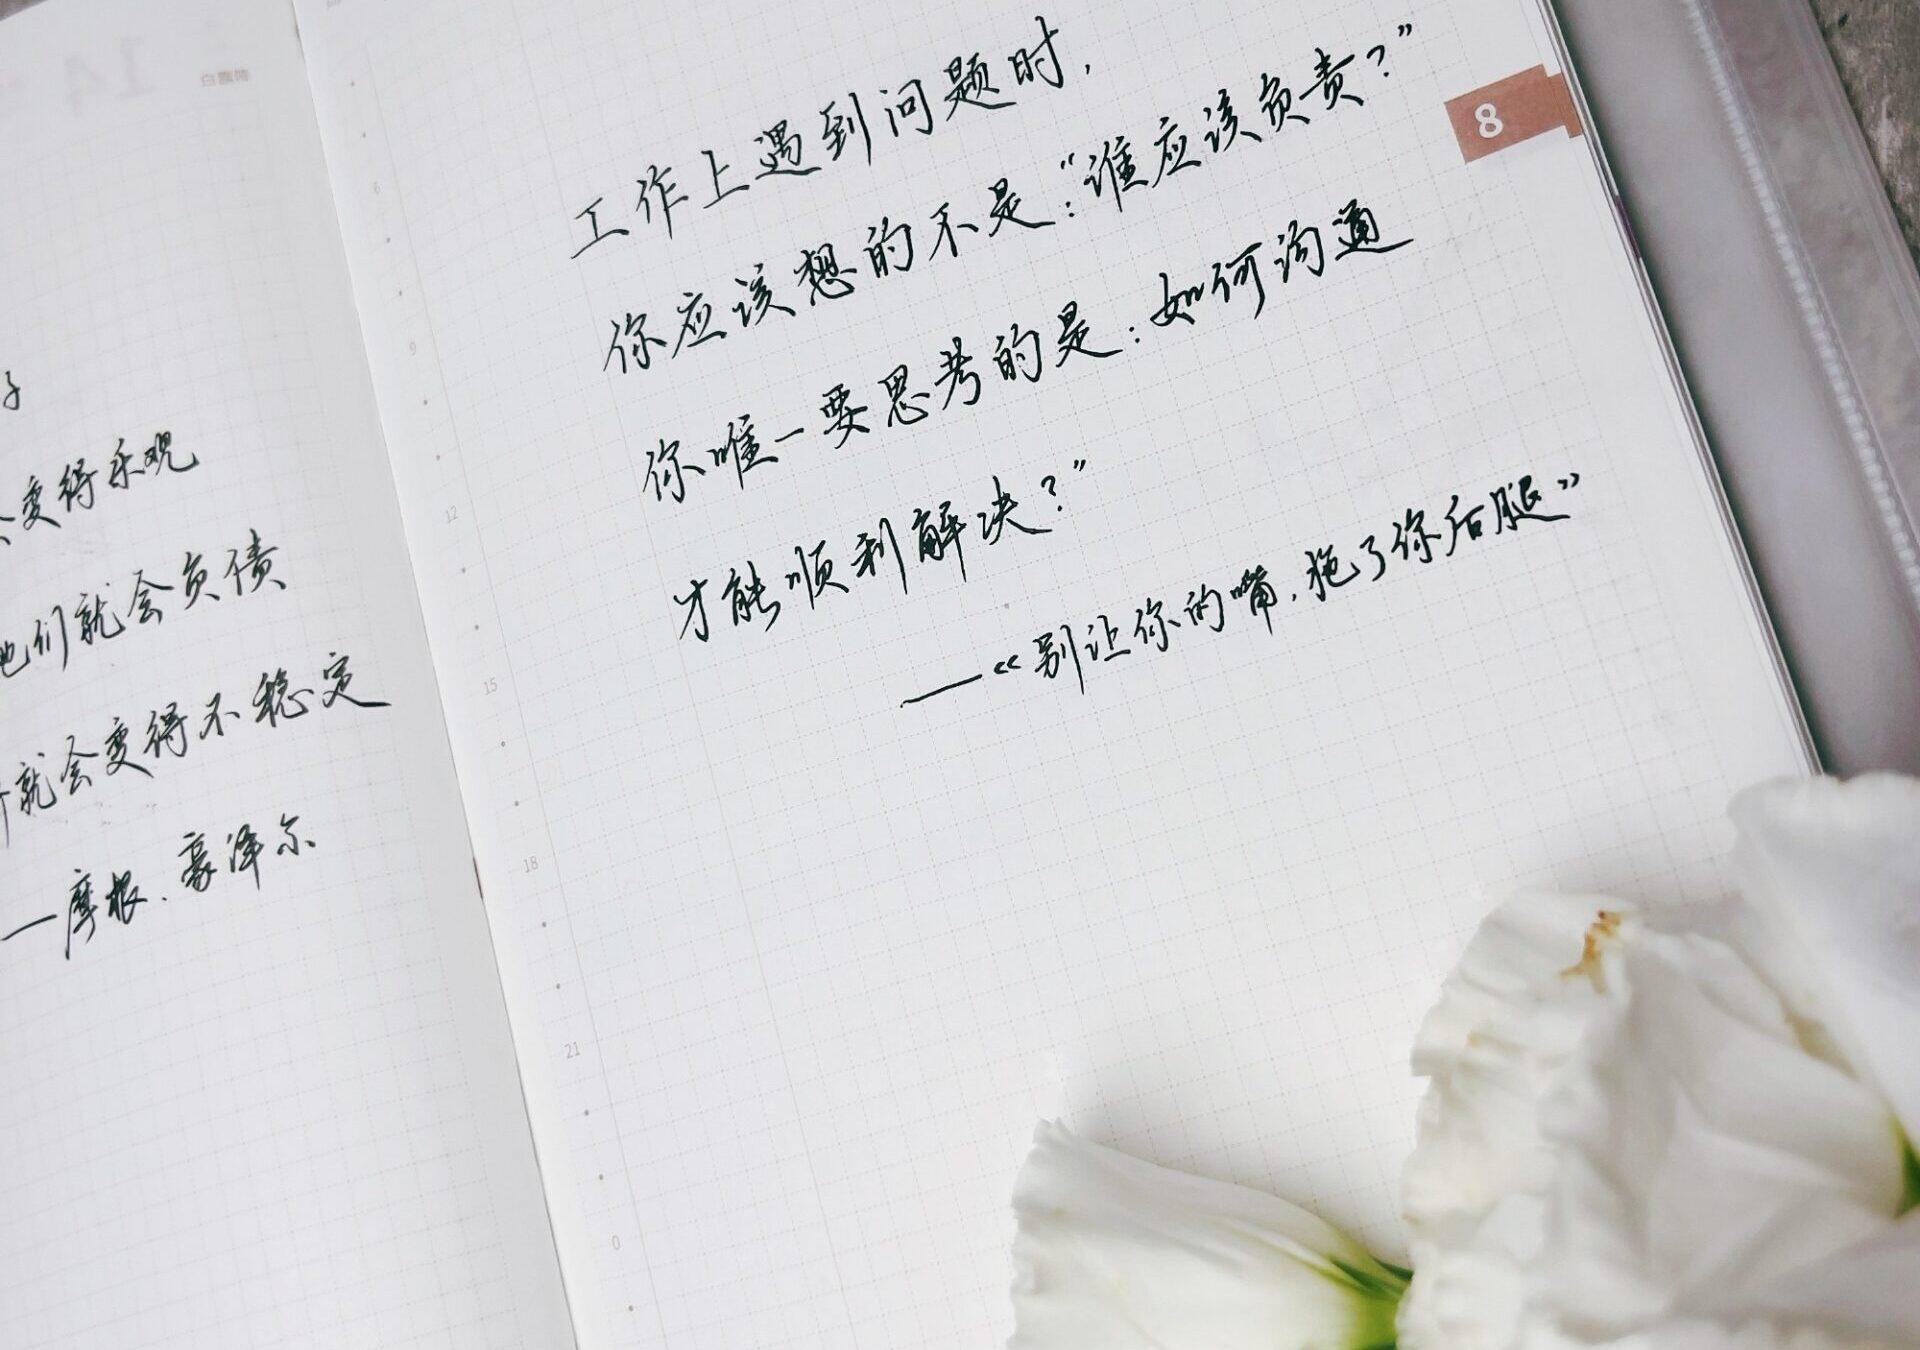 白露降
子
变得乐观
他们就会负债
就会变得不稳定
—摩根.豪泽尔
8
工作上遇到问题时,
你应该想的不是:“谁应该负责?”
你唯一要思考的是:如何沟通
才能顺利解决?”
——《别让你的嘴,拖了你后腿》
6
9
12
15
18
21
0